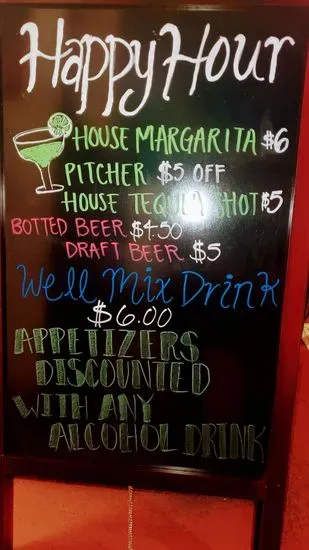 Happy Hour
HOUSE MARGARITA $6
PITCHER $5 OFF
HOUSE TEQUILA SHOT $5
BOTTED BEER $4.50
DRAFT BEER $5
Well Mix Drink
$6.00
APPETIZERS
DISCOUNTED
WITH ANY
ALCOHOL DRINK